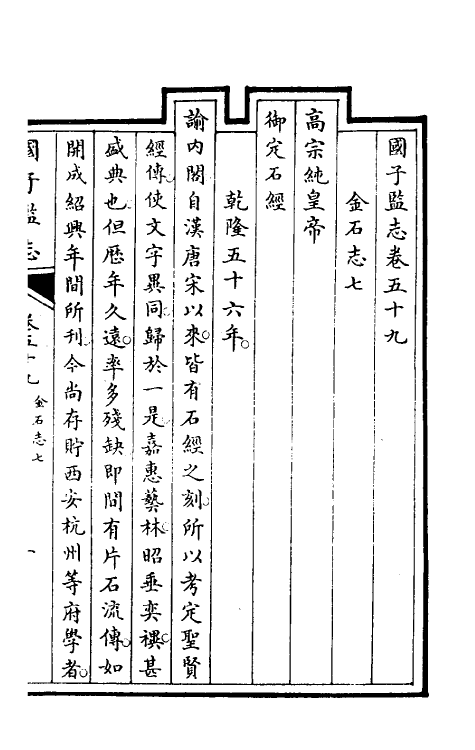 國子監志卷五十九
金石志七
高宗純皇帝
御定石經
乾隆五十六年。
諭內閣自漢唐宋以來。皆有石經之刻。所以考定聖賢
經傳。使文字異同。歸於一是。嘉惠藝林。昭垂奕禩。甚
盛典也。但歷年久遠。率多殘缺。即間有片石流傳。如
開成紹興年間所刊。今尚存貯西安杭州等府學者。
國子監志 卷五十九 金石志七 一